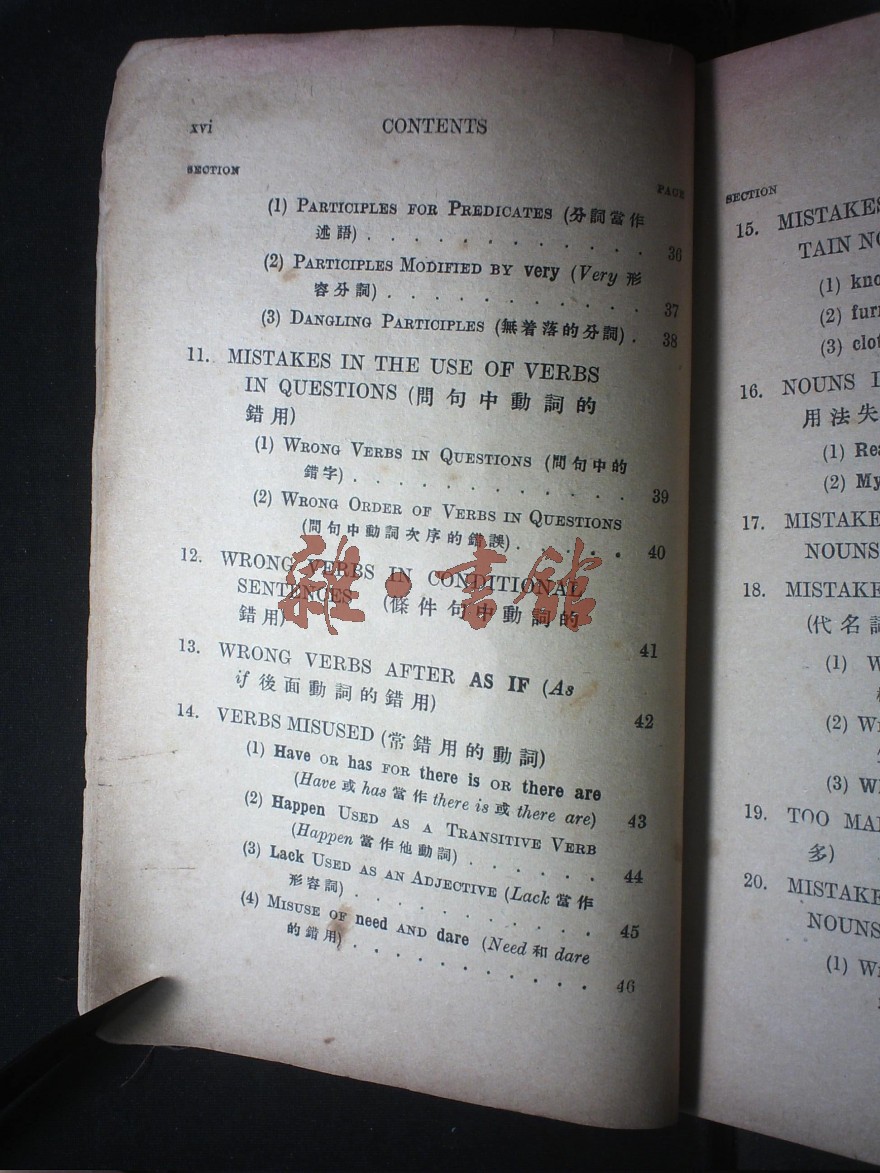 xvi CONTENTS
SECTION PAGE
(1) PARTICIPLES FOR PREDICATES (分詞當作
述語) . . . . . . . . . . . . 36
(2) PARTICIPLES MODIFIED BY very (Very 形
容分詞) . . . . . . . . . . . 37
(3) DANGLING PARTICIPLES (無着落的分詞) . 38
11. MISTAKES IN THE USE OF VERBS
IN QUESTIONS (問句中動詞的
錯用)
(1) WRONG VERBS IN QUESTIONS (問句中的
錯字) . . . . . . . . . . . . 39
(2) WRONG ORDER OF VERBS IN QUESTIONS
(問句中動詞次序的錯誤) . . . . . 40
12. WRONG VERBS IN CONDITIONAL
SENTENCES (條件句中動詞的
錯用) 41
13. WRONG VERBS AFTER AS IF (As
if 後面動詞的錯用) 42
14. VERBS MISUSED (常錯用的動詞)
(1) Have OR has FOR there is OR there are
(Have 或 has 當作 there is 或 there are) 43
(2) Happen USED AS A TRANSITIVE VERB
(Happen 當作他動詞) . . . . . . 44
(3) Lack USED AS AN ADJECTIVE (Lack 當作
形容詞) . . . . . . . . . . 45
(4) MISUSE OF need AND dare (Need 和 dare
的錯用) . . . . . . . . . . 46
雜·書館
SECTION
15. MISTAKES
TAIN
(1)
(2)
(3)
16. NOUNS
用法失
(1)
(2) My
17.
NOUNS
18.
(代名詞
(1)
(2)
(3)
19. TOO
多)
20.
NOUNS
(1)